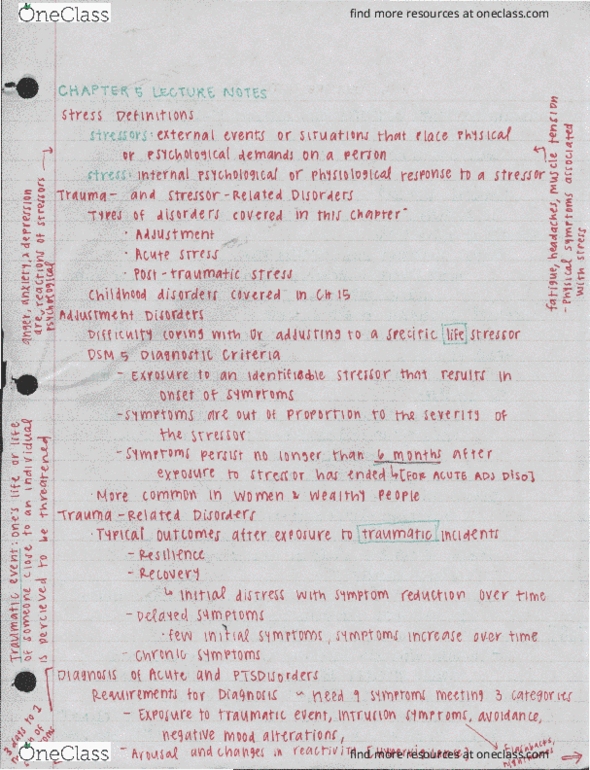 OneClass
find more resources at oneclass.com
CHAPTER 5 LECTURE NOTES
Stress Definitions
stressors: external events or situations that place physical
or psychological demands on a person
stress: internal psychological or physiological response to a stressor
Trauma- and stressor-Related Disorders
Types of disorders covered in this chapter-
· Adjustment
· Acute stress
· Post-traumatic stress
Childhood disorders covered in CH 15
Adjustment Disorders
Difficulty coping with or adjusting to a specific life stressor
DSM 5 Diagnostic Criteria
- Exposure to an identifiable stressor that results in
onset of symptoms
- Symptoms are out of proportion to the severity of
the stressor
- Symptoms persist no longer than 6 months after
exposure to stressor has ended ↳ [FOR ACUTE ADJ DISO]
· More common in women & wealthy people
Trauma-Related Disorders
· Typical outcomes after exposure to traumatic incidents
- Resilience
- Recovery
↳ initial distress with symptom reduction over time
- Delayed symptoms
· few initial symptoms, symptoms increase over time
- Chronic symptoms
Diagnosis of Acute and PTSDisorders
Requirements for Diagnosis ~ need 9 symptoms meeting 3 categories
- Exposure to traumatic event, intrusion symptoms, avoidance,
negative mood alterations,
- Arousal and changes in reactivity
anger, anxiety, & depression
are reactions of stressors
psychological
Traumatic event: one's life or life
of someone close to an individual
is percieved to be threatened
3 days to 1
fatigue, headaches, muscle tension
- Physical symptoms associated
with stress
flashbacks,
OneClass
find more resources at oneclass.com